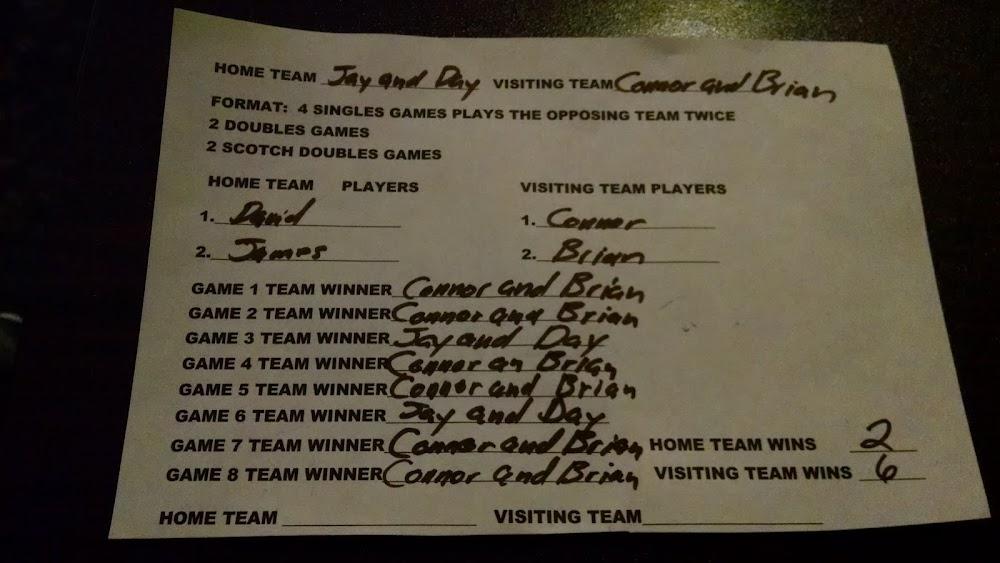 HOME TEAM Jay and Day VISITING TEAM Connor and Brian
FORMAT: 4 SINGLES GAMES PLAYS THE OPPOSING TEAM TWICE
2 DOUBLES GAMES
2 SCOTCH DOUBLES GAMES
HOME TEAM PLAYERS VISITING TEAM PLAYERS
1. David 1. Connor
2. James 2. Brian
GAME 1 TEAM WINNER Connor and Brian
GAME 2 TEAM WINNER Connor and Brian
GAME 3 TEAM WINNER Jay and Day
GAME 4 TEAM WINNER Connor an Brian
GAME 5 TEAM WINNER Connor and Brian
GAME 6 TEAM WINNER Jay and Day
GAME 7 TEAM WINNER Connor and Brian HOME TEAM WINS 2
GAME 8 TEAM WINNER Connor and Brian VISITING TEAM WINS 6
HOME TEAM VISITING TEAM